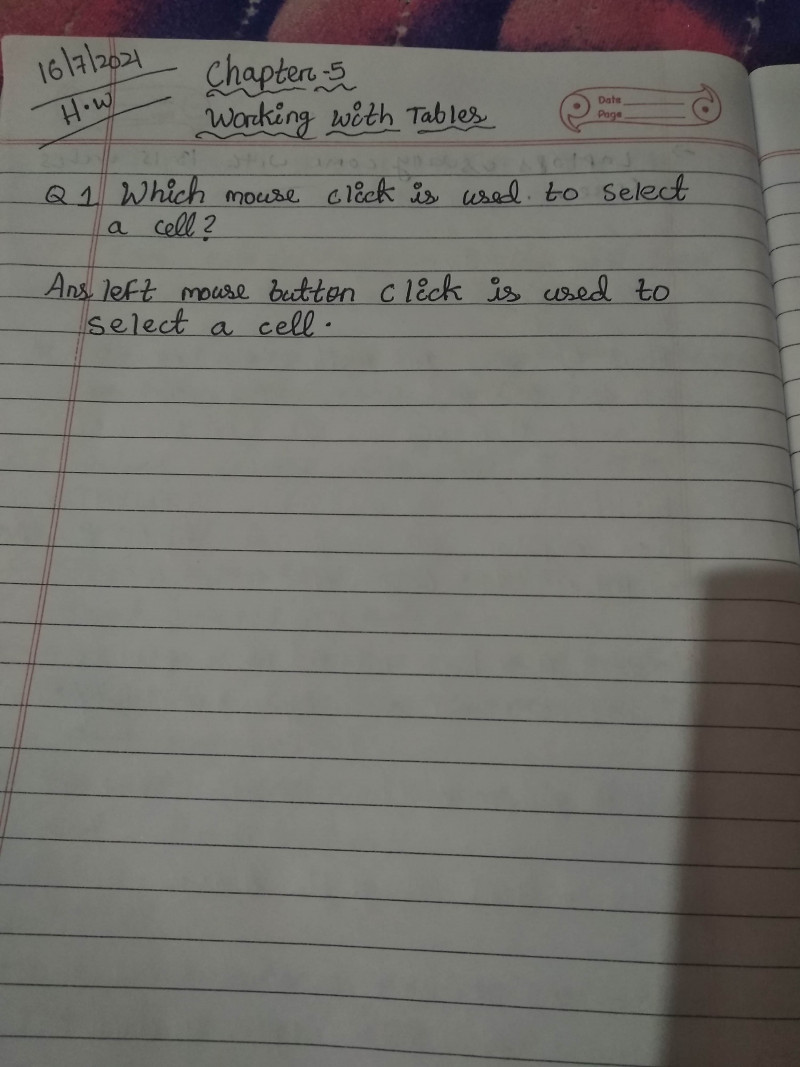 16/7/2021
H.W
Chapter-5
Working with Tables
Date
Page
Q 1 Which mouse click is used to select
a cell?
Ans left mouse button click is used to
select a cell.